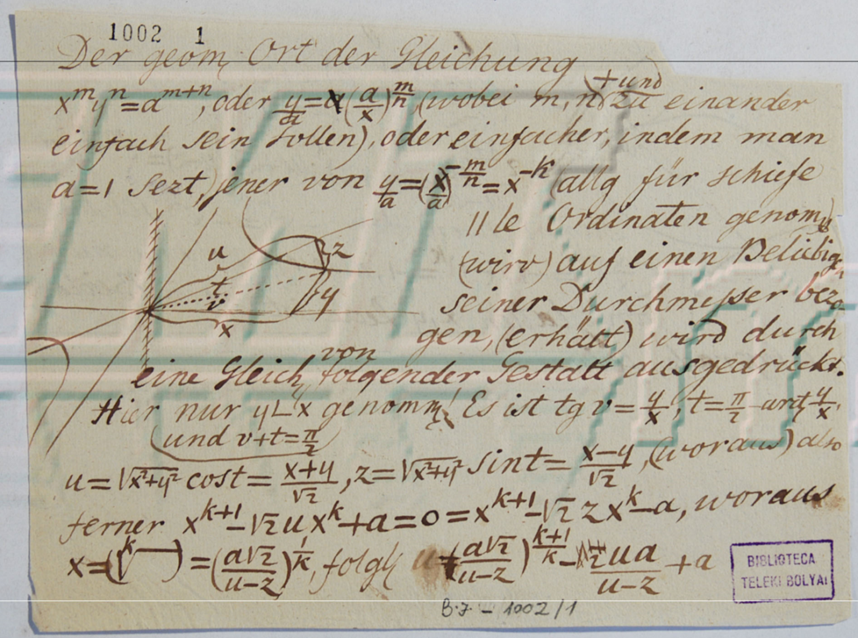 1002 1
Der geom. Ort der Gleichung
x^m y^n = a^{m+n}, oder y/a = (a/x)^{m/n} (wobei m, n + und zu einander
einfach sein sollen), oder einfacher, indem man
a=1 sezt, jener von y/a = (x/a)^{-m/n} = x^{-k} (allg für schiefe
||le Ordinaten genom̅
(wird) auf einen Beliebig.
seiner Durchmeſser bezo
gen, (erhält) wird durch
eine Gleich, von folgender Gestalt ausgedrückt.
Hier nur y⊥x genom̅! Es ist tg v = y/x, t = π/2 - arctg y/x
(und v+t = π/2
u = √x²+y² cos t = x+y/√2, z = √x²+y² sin t = x-y/√2, (woraus) also
ferner x^{k+1} - √2 u x^k + a = 0 = x^{k+1} - √2 z x^k - a, woraus
x = (^k√ ) = (a√2/u-z)^{1/k}, folgl u (a√2/u-z)^{k+1/k} - 2ua/u-z + a
u
t
v
x
z
y
BIBLIOTECA
TELEKI BOLYAI
B.J. - 1002/1